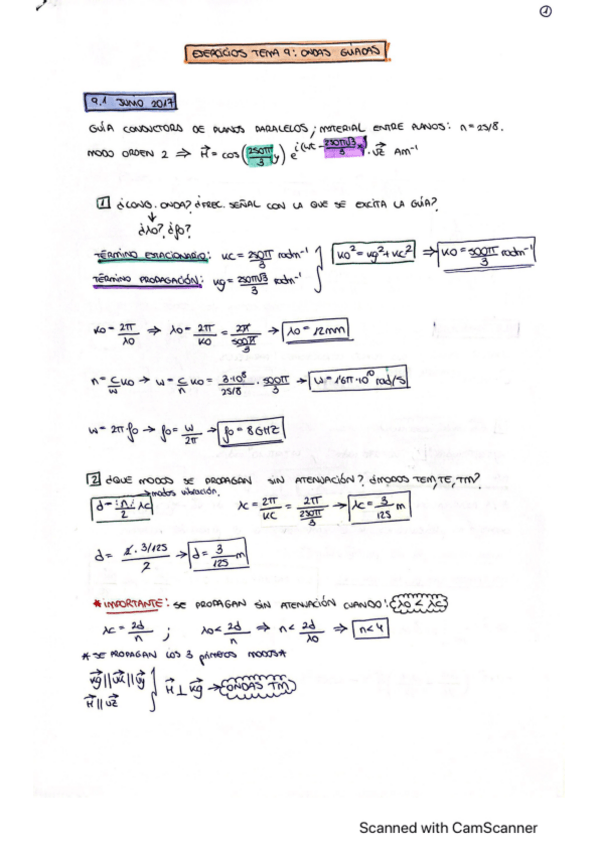 1
EJERCICIOS TEMA 9: ONDAS GUIADAS
9.1 JUNIO 2017
GUÍA CONDUCTORA DE PLANOS PARALELOS; MATERIAL ENTRE PLANOS: n = 25/8.
MODO ORDEN 2 ⇒ H⃗ = cos(250π/3 y) e^i(ωt - 250π√3/3 x) · u⃗z Am⁻¹
1 ¿LONG. ONDA? ¿FREC. SEÑAL CON LA QUE SE EXCITA LA GUÍA?
↓
¿λ0? ¿f0?
TÉRMINO ESTACIONARIO: kc = 250π/3 radm⁻¹
TÉRMINO PROPAGACIÓN: kg = 250π√3/3 radm⁻¹
k0² = kg² + kc² ⇒ k0 = 500π/3 radm⁻¹
k0 = 2π/λ0 ⇒ λ0 = 2π/k0 = 2π/(500π/3) → λ0 = 12mm
n = c/ω k0 → ω = c/n k0 = 3·10⁸/(25/8) · 500π/3 → ω = 1'6π·10¹⁰ rad/s
ω = 2πf0 → f0 = ω/2π → f0 = 8GHZ
2 ¿QUE MODOS SE PROPAGAN SIN ATENUACIÓN? ¿MODOS TEM, TE, TM?
→ modos vibración.
d = n/2 λc
λc = 2π/kc = 2π/(250π/3) → λc = 3/125 m
d = 2 · 3/125 / 2 → d = 3/125 m
* IMPORTANTE: SE PROPAGAN SIN ATENUACIÓN CUANDO: λ0 < λc
λc = 2d/n ; λ0 < 2d/n ⇒ n < 2d/λ0 ⇒ n < 4
* SE PROPAGAN LOS 3 primeros MODOS *
k⃗g || u⃗x || u⃗y
H⃗ || u⃗z
H⃗ ⊥ k⃗g → ONDAS TM
Scanned with CamScanner